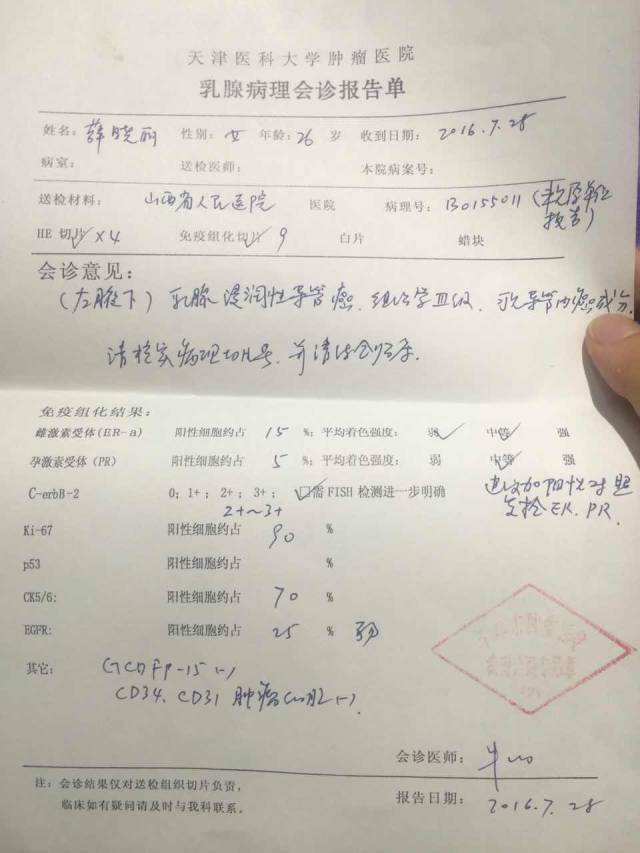 天津医科大学肿瘤医院
乳腺病理会诊报告单
姓名：薛晓丽 性别：女 年龄：26 岁 收到日期：2016.7.28
病室： 送检医师： 本院病案号：
送检材料： 山西省人民医院 医院 病理号：B0155011（未见原单位报告）
HE 切片✓×4 免疫组化切片✓9 白片 蜡块
会诊意见：
（左腋下）乳腺浸润性导管癌，组织学Ⅲ级，可见导管内癌成分，
请核实病理切片号，并请结合临床．
免疫组化结果：
雌激素受体(ER-a) 阳性细胞约占 15 %；平均着色强度： 弱✓ 中等✓ 强
孕激素受体（PR） 阳性细胞约占 5 %；平均着色强度： 弱 中等✓ 强
C-erbB-2 0；1+； 2+； 3+； ☑需 FISH 检测进一步明确 建议加阳性对照
2+~3+ 复检 ER、PR．
Ki-67 阳性细胞约占 90 %
p53 阳性细胞约占 %
CK5/6: 阳性细胞约占 70 %
EGFR: 阳性细胞约占 25 % 弱
其它： GCDFP-15(-)
CD34、CD31 肿瘤细胞(-)
会诊医师：
注：会诊结果仅对送检组织切片负责，
临床如有疑问请及时与我科联系。
报告日期： 2016.7.28